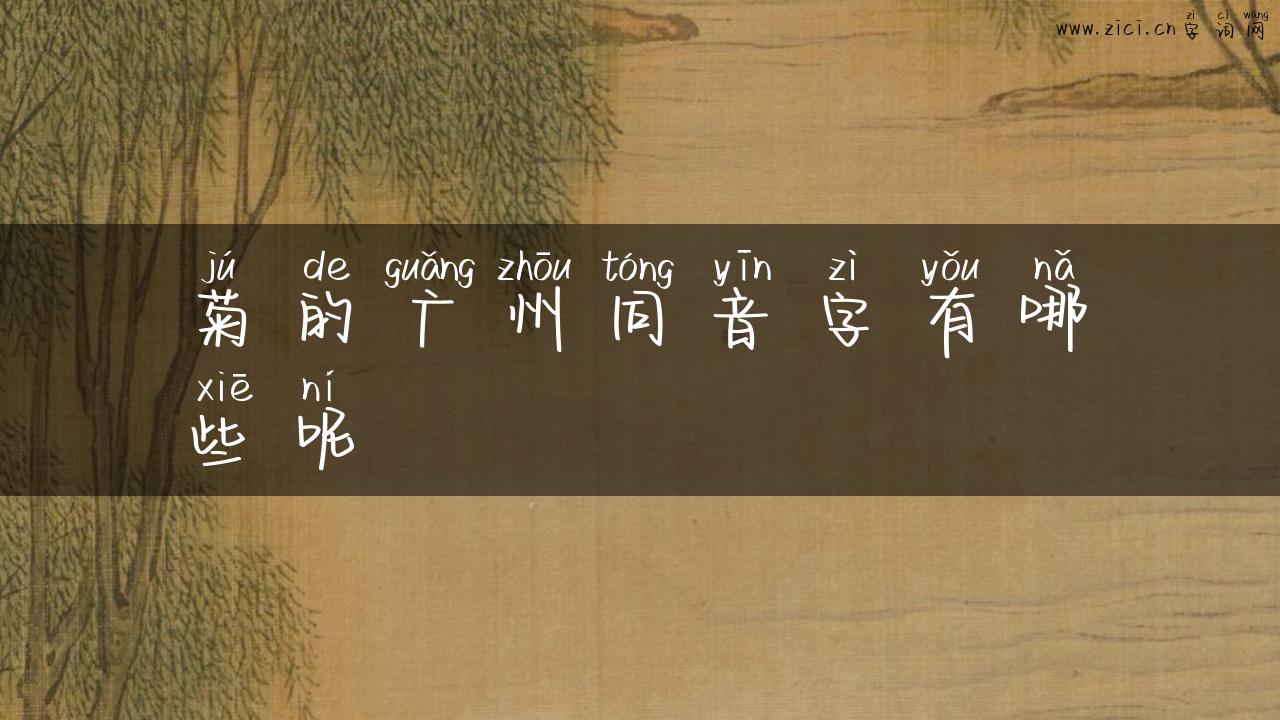 zì cí wǎng
www.zici.cn 字词网
jú de guǎng zhōu tóng yīn zì yǒu nǎ
菊的广州同音字有哪
xiē ní
些呢